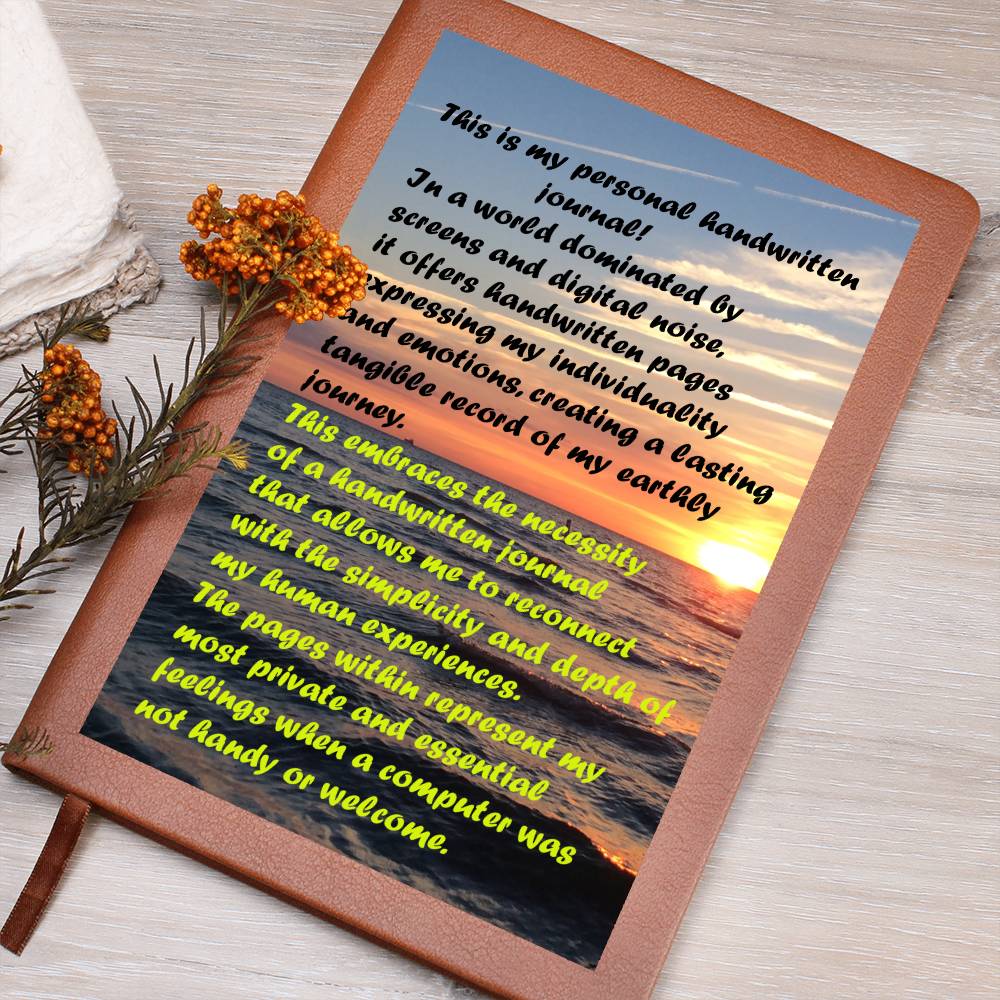 This is my personal handwritten
journal!
In a world dominated by
screens and digital noise,
it offers handwritten pages
expressing my individuality
and emotions, creating a lasting
tangible record of my earthly
journey.
This embraces the necessity
of a handwritten journal
that allows me to reconnect
with the simplicity and depth of
my human experiences.
The pages within represent my
most private and essential
feelings when a computer was
not handy or welcome.